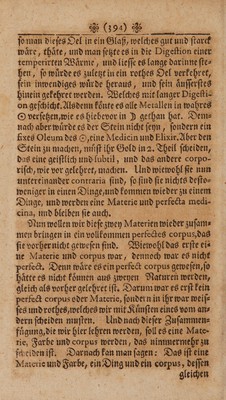 (394)
so man dieses Oel in ein Glaß, welches gut und starck
wäre, thäte, und man setzte es in die Digestion einer
temperirten Wärme, und liesse es lange darinne ste-
hen, so würde es zuletzt in ein rothes Oel verkehret,
sein inwendiges wäre heraus, und sein äusserstes
hinein gekehret werden. Welches mit langer Digesti-
on geschicht. Alsdenn könte es alle Metallen in wahres
☉ versetzen, wie es hiebevor in ☽ gethan hat. Den-
noch aber würde es der Stein nicht seyn, sondern ein
fixes Oleum des ☉, eine Medicin und Elixir. Aber den
Stein zu machen, muß ihr Gold in 2. Theil scheiden,
das eine geistlich und subtil, und das andere corpo-
risch, wie vor gelehret, machen. Und wiewohl sie nun
untereinander contraria sind, so sind sie nichts desto-
weniger in einen Dinge, und kommen wieder zu einem
Dinge, und werden eine Materie und perfecta medi-
cina, und bleiben sie auch.
Nun wollen wir diese zwey Materien wieder zusam-
men bringen in ein vollkommen perfectes corpus, das
sie vorher nicht gewesen sind. Wiewohl das erste ei-
ne Materie und corpus war, dennoch war es nicht
perfect. Denn wäre es ein perfect corpus gewesen, so
hätte es nicht können aus zweyen Naturen werden,
gleich als vorher gelehret ist. Darum war es erst kein
perfect corpus oder Materie, sondern in ihr war weis-
ses und rothes, welches wir mit Künsten eines vom an-
dern scheiden musten. Und nach dieser Zusammen-
fügung, die wir hier lehren werden, soll es eine Mate-
rie, Farbe und corpus werden, das nimmermehr zu
scheiden ist. Darnach kan man sagen: Das ist eine
Materie und Farbe, ein Ding und ein corpus, dessen
gleichen